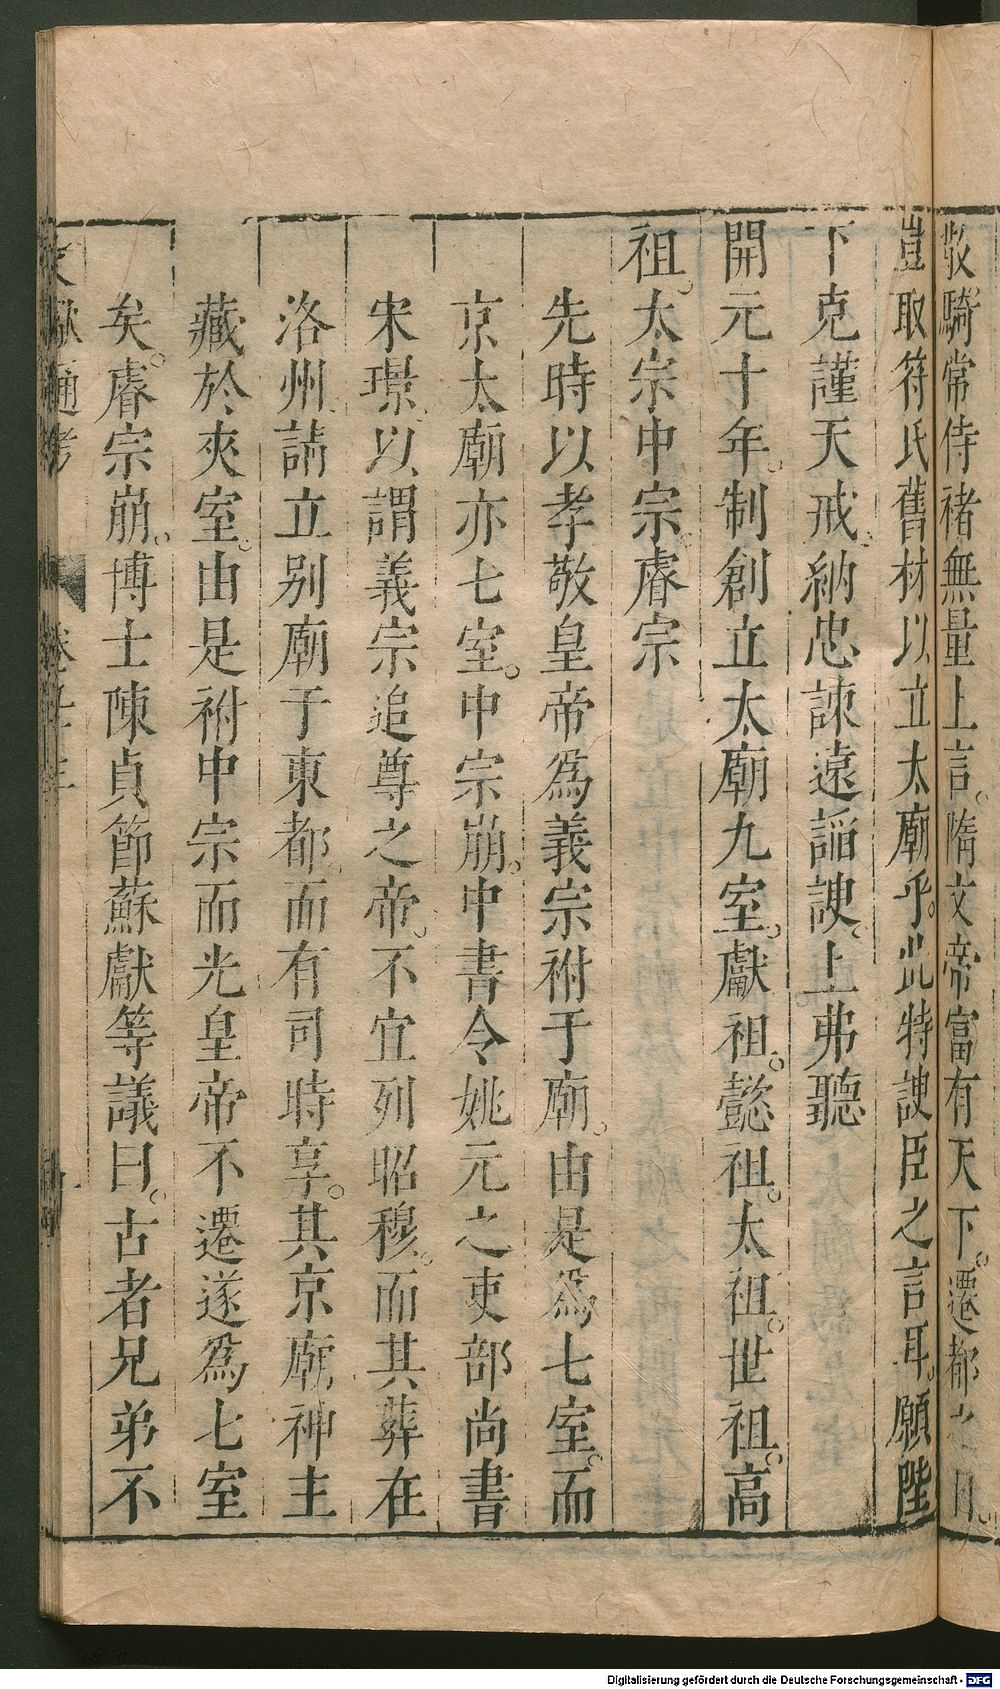 散騎常侍褚無量上言隋文帝富有天下遷都之日
豈取符氏舊材以立太廟乎此特諛臣之言耳願陛
下克謹天戒納忠諫遠謟諛上弗聽
開元十年制創立太廟九室獻祖懿祖太祖世祖高
祖太宗中宗睿宗
先時以孝敬皇帝爲義宗祔于廟由是爲七室而
京太廟亦七室中宗崩中書令姚元之吏部尚書
宋璟以謂義宗追尊之帝不宜列昭穆而其葬在
洛州請立别廟于東都而有司時享其京廟神主
藏於夾室由是祔中宗而光皇帝不遷遂爲七室
矣睿宗崩博士陳貞節蘇獻等議曰古者兄弟不
文獻通考
Digitalisierung gefördert durch die Deutsche Forschungsgemeinschaft - DFG